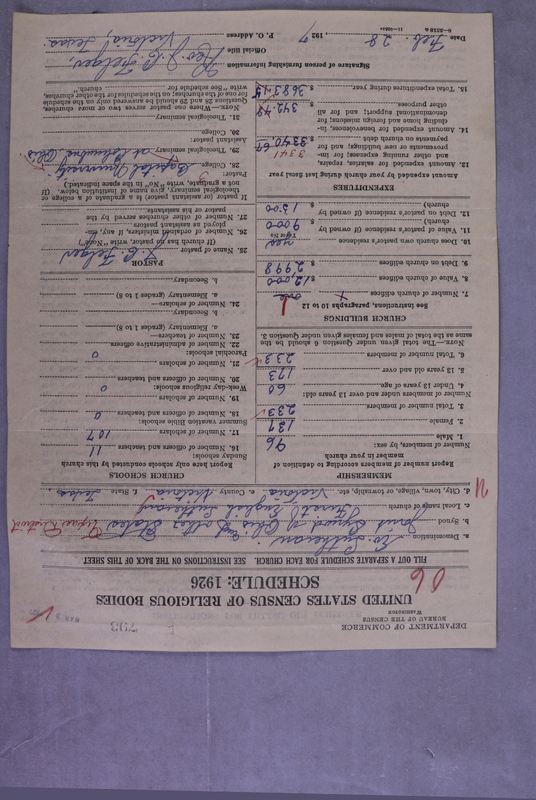 DEPARTMENT OF COMMERCE
BUREAU OF THE CENSUS
WASHINGTON
793
UNITED STATES CENSUS OF RELIGIOUS BODIES
SCHEDULE: 1926
06
FILL OUT A SEPARATE SCHEDULE FOR EACH CHURCH. SEE INSTRUCTIONS ON THE BACK OF THIS SHEET
a. Denomination Ev. Lutheran
b. Synod Joint Synod of Ohio and Other States Texas District
c. Local name of church First English Lutheran
d. City, town, village, or township, etc. Victoria e. County Victoria f. State Texas.
MEMBERSHIP
Report number of members according to definition of member in your church
Number of members, by sex:
1. Male 96
2. Female 137
3. Total number of members. 233
Number of members under and over 13 years old:
4. Under 13 years of age. 60
5. 13 years old and over 173
6. Total number of members 233
NOTE.—The total given under Question 6 should be the same as the total of males and females given under Question 3.
CHURCH BUILDINGS
See instructions, paragraphs 10 to 12
7. Number of church edifices one 1
8. Value of church edifices $ 12,000
9. Debt on church edifices $ 2998
10. Does church own pastor's residence yes
(Yes or No)
11. Value of pastor's residence (if owned by church) $ 9000
12. Debt on pastor's residence (if owned by church) $ 1500
EXPENDITURES
Amount expended by your church during last fiscal year
12. Amount expended for salaries, repairs, and other running expenses; for improvements or new buildings; and for payments on church debt $ 3340.67
3341
14. Amount expended for benevolences, including home and foreign missions; for denominational support; and for all other purposes $ 342.48
15. Total expenditures during year $ 3683.15
CHURCH SCHOOLS
Report here only schools conducted by this church
Sunday schools:
16. Number of officers and teachers 11
17. Number of scholars 107
Summer vacation Bible schools:
18. Number of officers and teachers 0
19. Number of scholars
Week-day religious schools:
20. Number of officers and teachers 0
21. Number of scholars
Parochial schools: 0
22. Number of administrative officers
23. Number of teachers—
a. Elementary (grades 1 to 8)
b. Secondary
24. Number of scholars—
a. Elementary (grades 1 to 8)
b. Secondary
PASTOR
25. Name of pastor J. C. Felger
(If church has no pastor, write "No")
26. Number of assistant pastors
27. Number of other churches served by the pastor or his assistants.
If pastor (or assistant pastor) is a graduate of a college or theological seminary, give name of institution below. (If not a graduate, write "No" in the space indicated.)
Pastor:
28. College Capital University
29. Theological seminary at Columbus, Ohio
Assistant pastor:
30. College
31. Theological seminary
NOTE.—Where one pastor serves two or more churches, Questions 28 and 29 should be answered only on the schedule for one of the churches; on the schedules for the other churches, write "See schedule for church."
Signature of person furnishing information Rev. J. C. Felger,
Official title
P. O. Address Victoria, Texas.
Date Feb. 28 1927